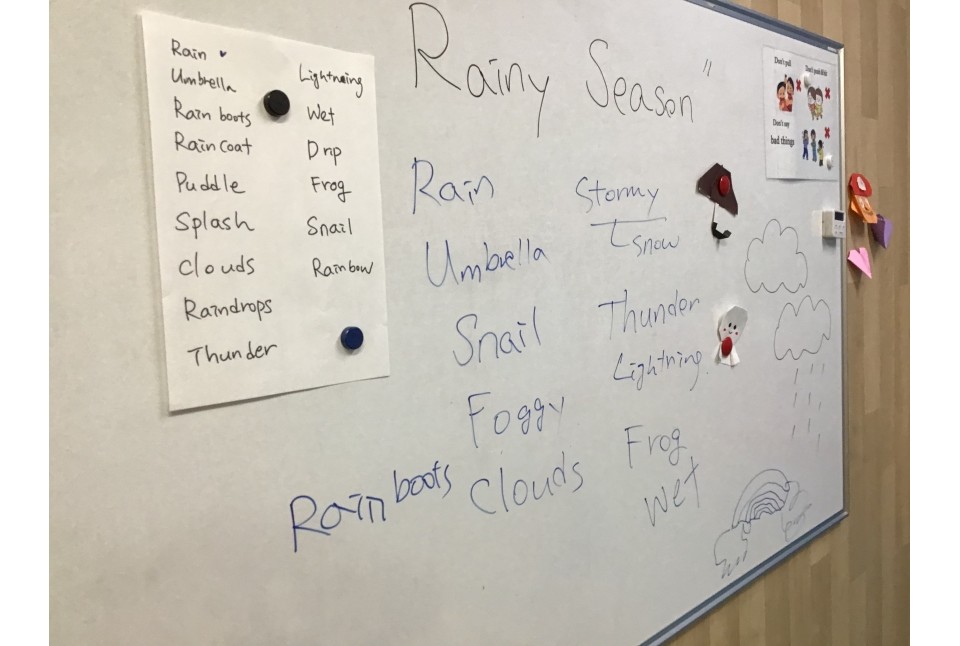 Rain
Umbrella
Rain boots
Raincoat
Puddle
Splash
Clouds
Raindrops
Thunder
Lightneing
Wet
Drip
Frog
Snail
Rainbow
Rainy Season"
Rain
Umbrella
Snail
Foggy
Clouds
Rainboots
Stormy
snow
Thunder
Lightning.
Frog
Wet
Don't pull
Don't say
bad things